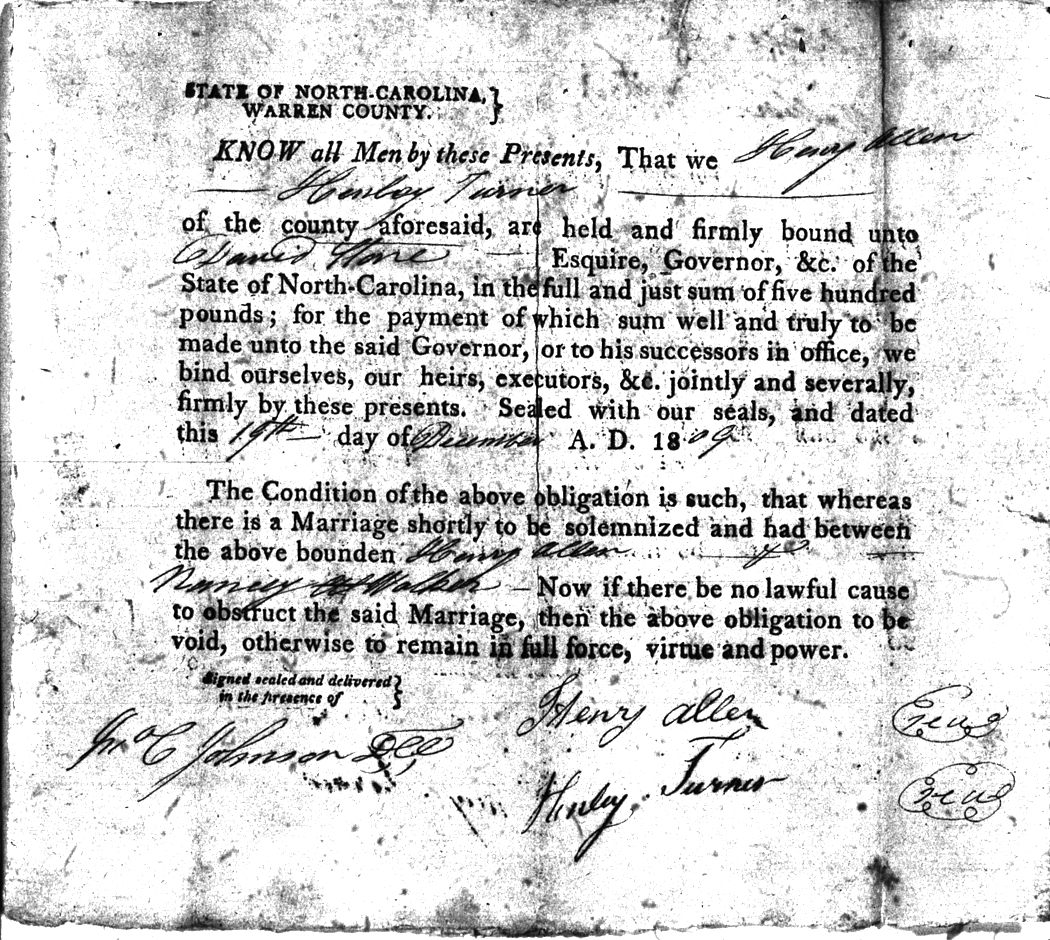 STATE OF NORTH-CAROLINA, }
WARREN COUNTY.
KNOW all Men by these Presents, That we Henry Allen
Henley Turner
of the county aforesaid, are held and firmly bound unto
David Stone Esquire, Governor, &c. of the
State of North-Carolina, in the full and just sum of five hundred
pounds; for the payment of which sum well and truly to be
made unto the said Governor, or to his successors in office, we
bind ourselves, our heirs, executors, &c. jointly and severally,
firmly by these presents. Sealed with our seals, and dated
this 19th day of December A. D. 1809
The Condition of the above obligation is such, that whereas
there is a Marriage shortly to be solemnized and had between
the above bounden Henry Allen &
Nancy Walker Now if there be no lawful cause
to obstruct the said Marriage, then the above obligation to be
void, otherwise to remain in full force, virtue and power.
Signed sealed and delivered }
in the presence of
Henry Allen Seal
Jno C Johnson DCC
Henley Turner Seal